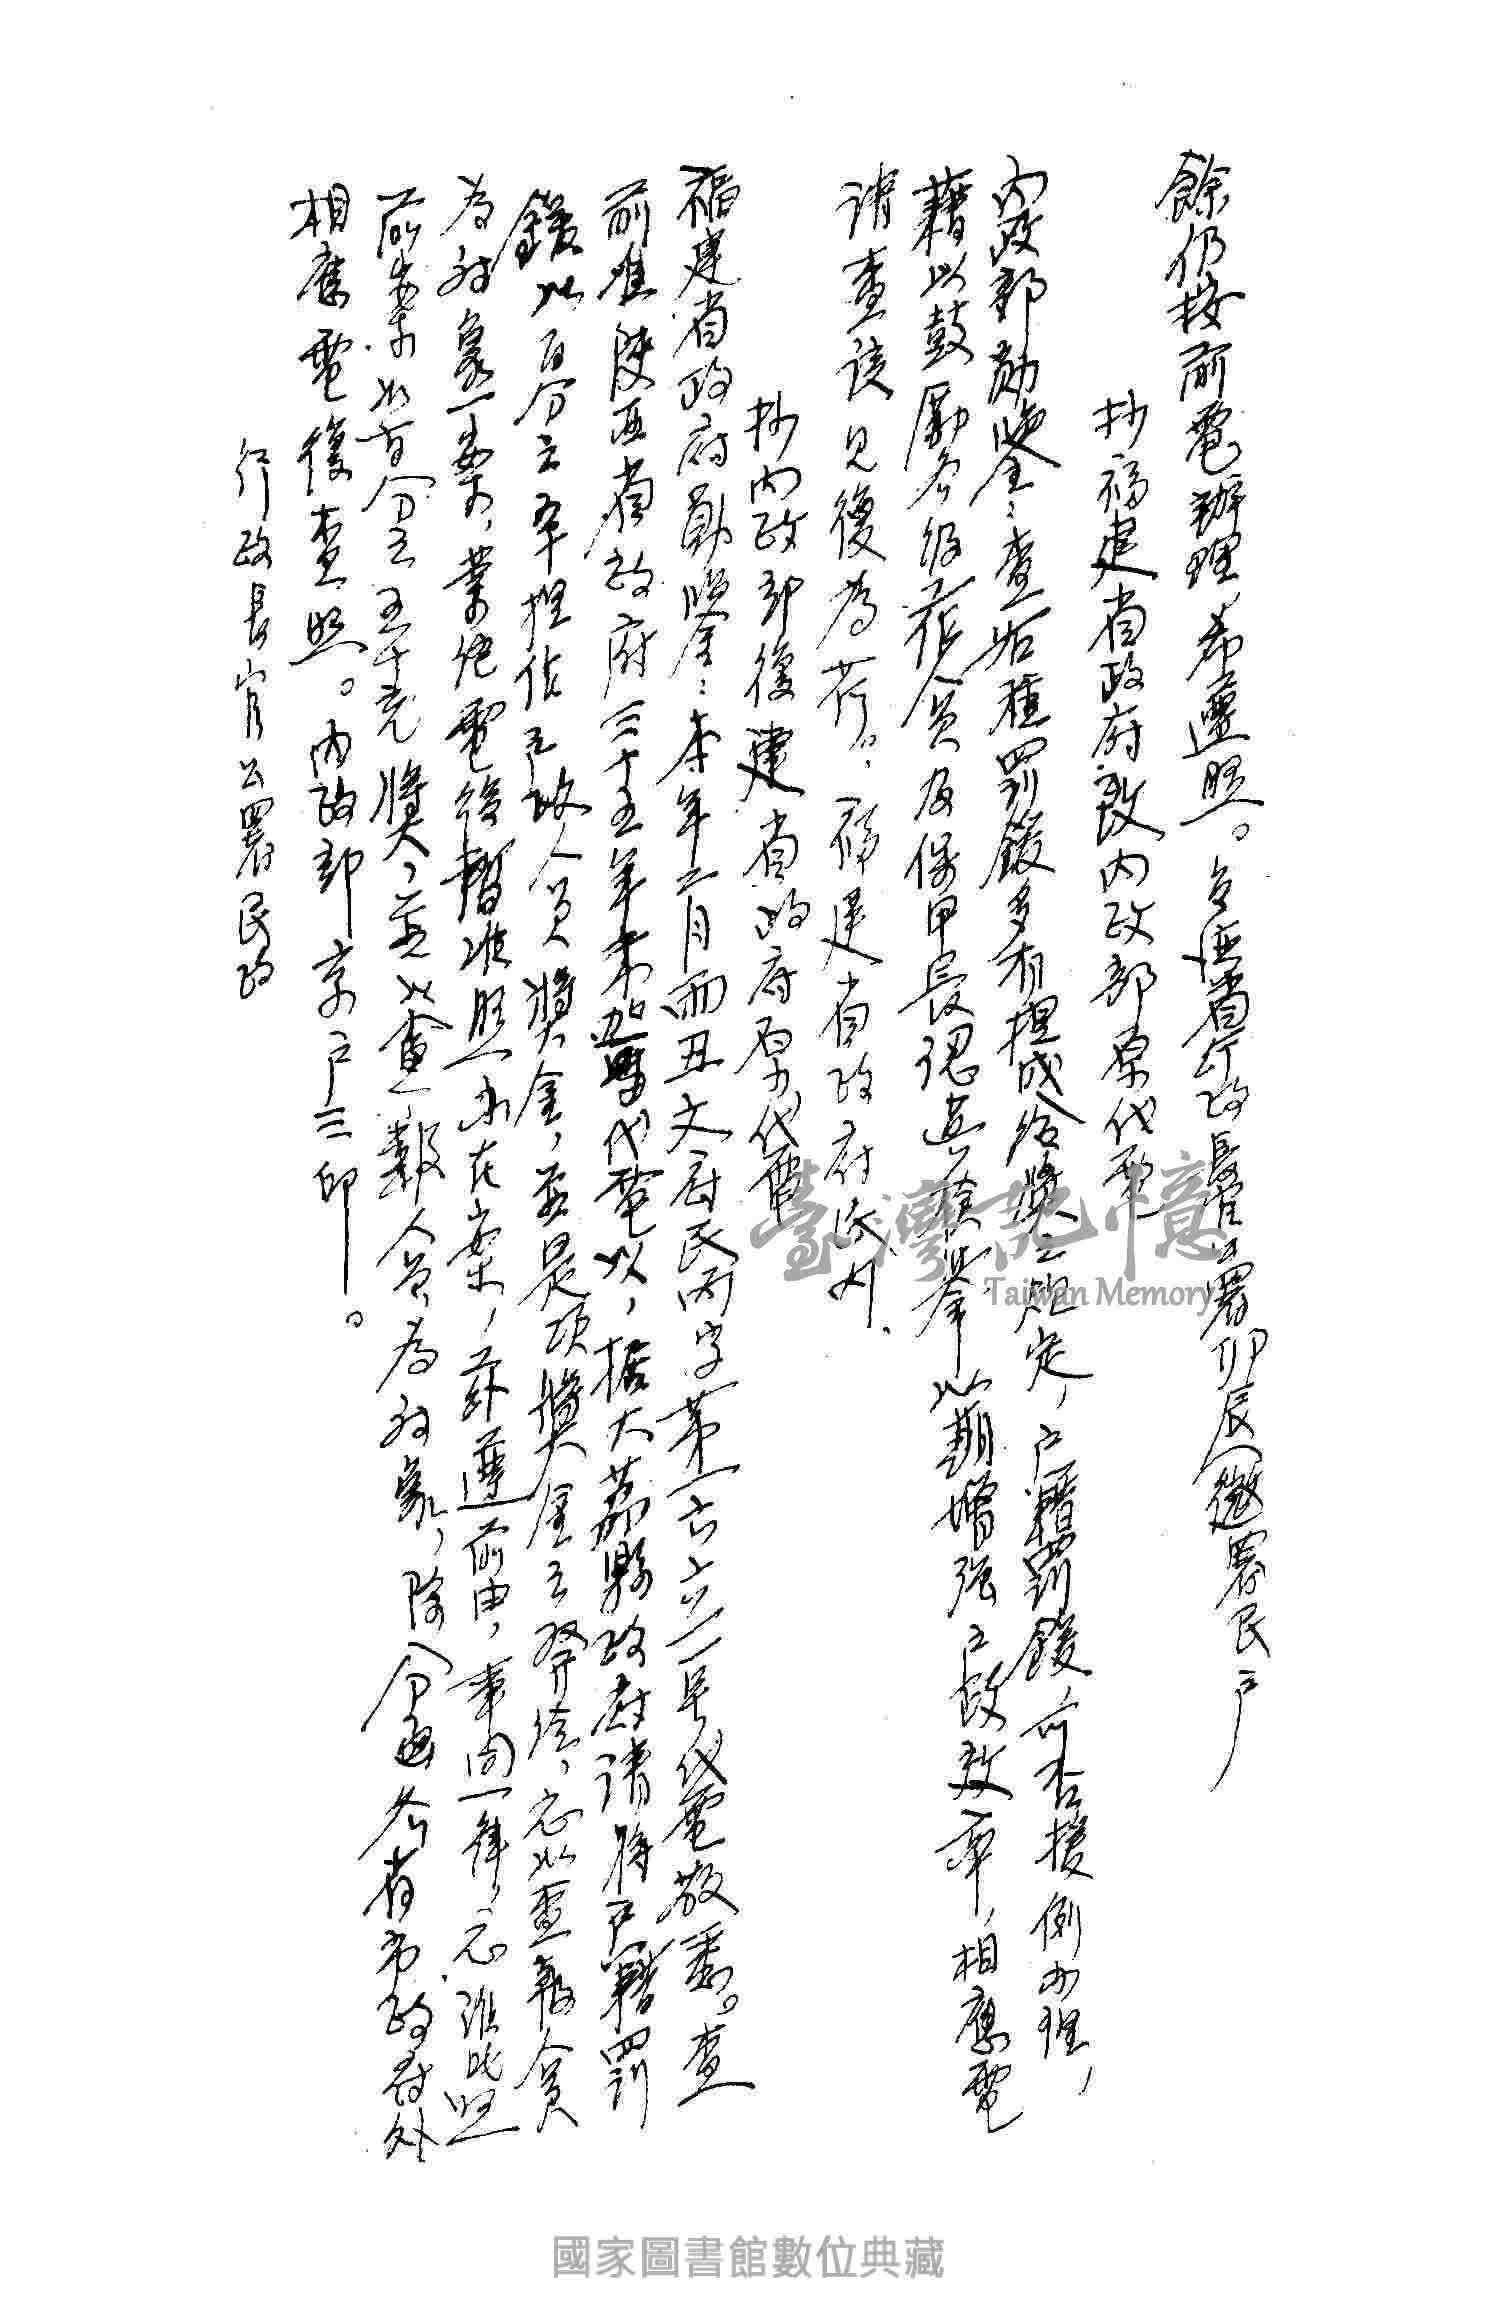 餘仍按前電辦理，希遵照。台灣省行政長官公署卯辰(微)署民戶
抄福建省政府致內政部原代電
內政部勛鑒：查各種罰鍰多有提成給獎之規定，戶籍罰鍰，可否援例办理，
藉以鼓勵各級人員及保甲長認真檢舉，以期增強戶政效率，相應電
請查核見復為荷。福建省政府民
抄內政部復建省政府原代電
福建省政府勛鑒：本年二月丑文府民丙字第一六六二一号代電敬悉。查
前准陝西省政府三十五年代電以，据大荔縣政府請將戶籍罰
鍰以百分之提作戶政人員獎金，並是項獎金之發給，应以查報人員
為对象一案，業經電復暫准照办在案，茲准前由，事同一律，应准比照
前案以百分之五十充獎，並以查報人員為对象，除分函各省市政府外
相應電復查照。內政部京戶三卯。
行政長官公署民政
臺灣記憶
Taiwan Memory
國家圖書館數位典藏